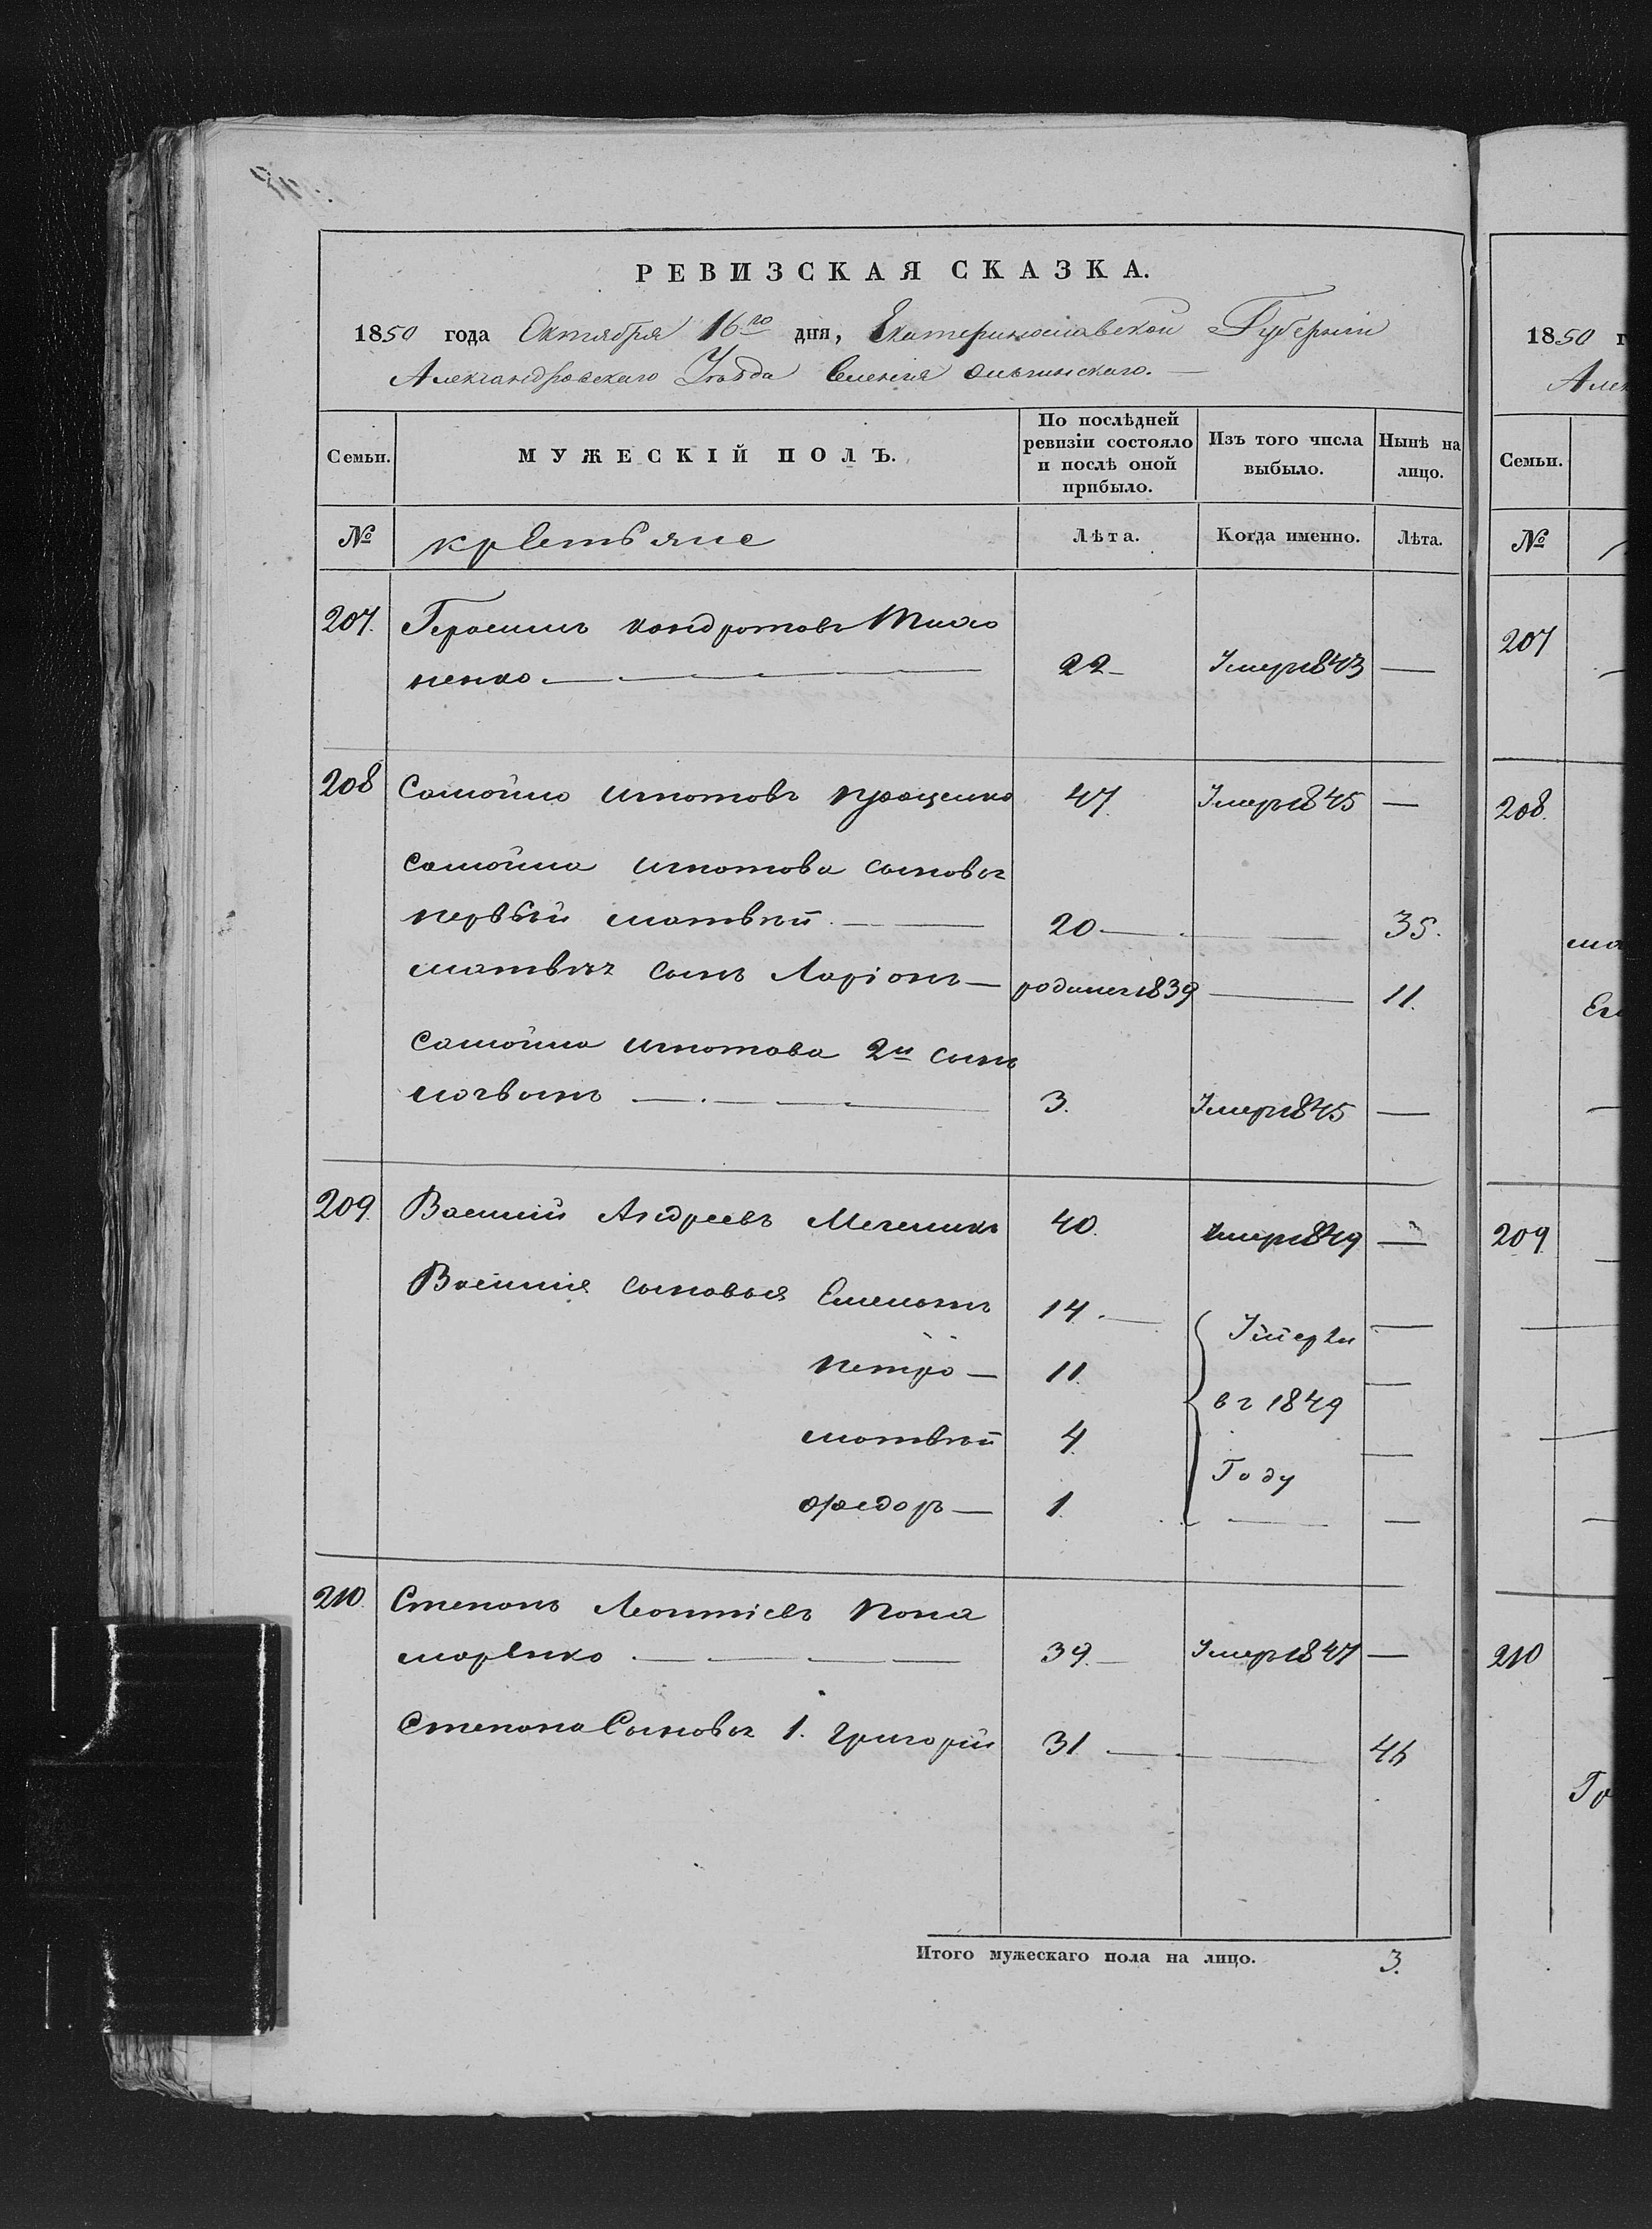 РЕВИЗСКАЯ СКАЗКА.
1850 года Октября 16го дня, Екатеринославской Губерніи
Александровскаго Уѣзда Селенія Ольгинскаго.
Семьи.
МУЖЕСКІЙ ПОЛЪ.
По послѣдней ревизіи состояло и послѣ оной прибыло.
Изъ того числа выбыло.
Нынѣ на лицо.
№ крестьяне Лѣта. Когда именно. Лѣта.
207. Герасимъ Кондратовъ
ненко 22 Умеръ 1843 —
208 Самойло Игнатовъ Проценко 47. Умеръ 1845 —
Самойла Игнатова сыновья
первый Матвѣй 20 — 35.
Матвѣя сынъ Ларіонъ — родился 1839 — 11.
Самойла Игнатова 2й сынъ
3. Умеръ 1845 —
209. Василий Андреевъ 40. Умеръ 1849 —
Василия сыновья Емельянъ 14. —
Петро — 11. —
Матвѣй 4. —
Федоръ — 1. —
Умерли
въ 1849
Году
210. Степанъ Леонтіевъ Пона
маренко 39. Умеръ 1847 —
Степана Сыновья 1. Григорій 31. — 46
Итого мужескаго пола на лицо. 3.
1850 г
Алек
Семьи.
№
207
208.
ма
Ег
209
210
Гр